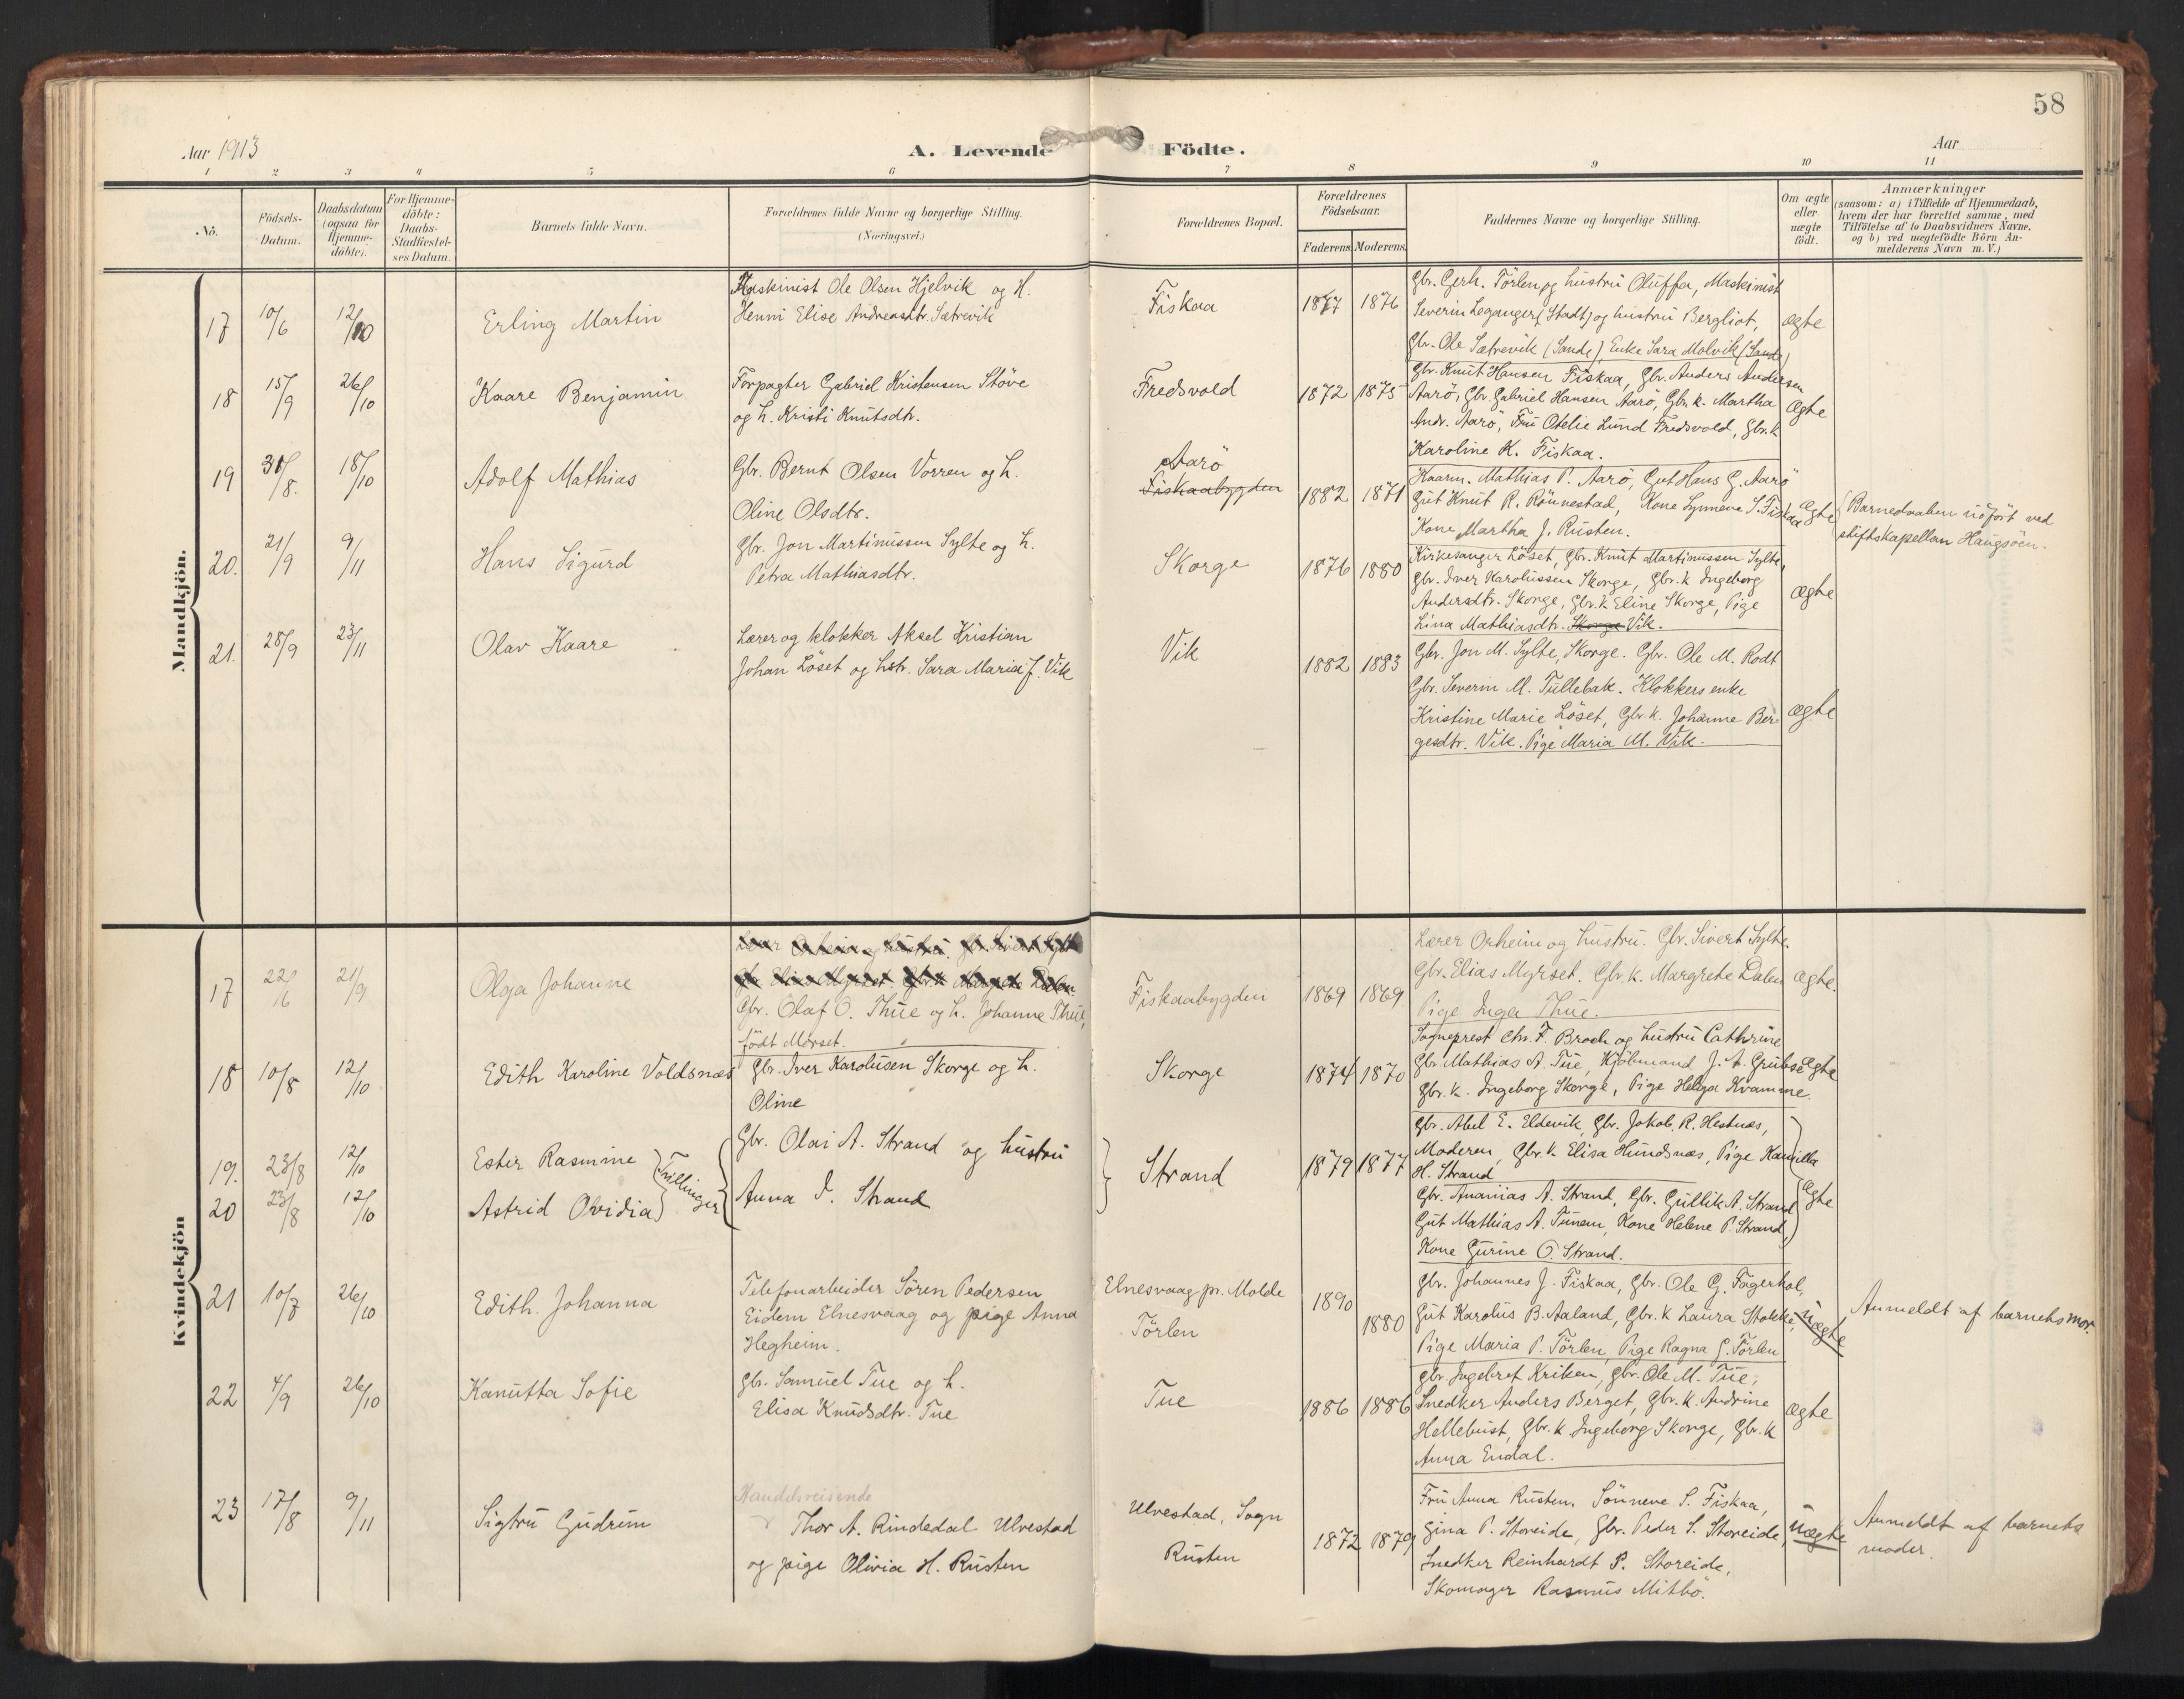 58
Aar 1913
A. Levende Födte.
Aar
1 2 3 4 5 6 7 8 9 10 11
No.
Födsels-Datum.
Daabsdatum (ogsaa for Hjemme-döbte).
For Hjemme-döbte: Daabs-Stadfæstel-ses Datum.
Barnets fulde Navn.
Forældrenes fulde Navne og borgerlige Stilling. (Næringsvei.)
Forældrenes Bopæl.
Forældrenes Födselsaar.
Faderens. Moderens.
Faddernes Navne og borgerlige Stilling.
Om ægte eller uægte födt.
Anmærkninger
(saasom: a) i Tilfælde af Hjemmedaab,
hvem der har forrettet samme, med
Tilföielse af to Daabsvidners Navne.
og b) ved uægtefödte Börn An-
melderens Navn m. V.)
Mandkjön.
17 10/6 12/10 Erling Martin
Maskinist Ole Olsen Hjelvik og H.
Henni Elise Andreasdtr. Sætrevik
Fiskaa 1877 1876
Gbr. Gerh. Törlen og hustru Oluffa, Maskinist
Severin Leganger (Stadt) og hustru Bergliot,
Gbr. Ole Sætrevik (Sande), Enke Sara Molvik (Sande)
ægte
18 15/9 26/10 Kaare Benjamin
Forpagter Gabriel Kristensen Stöve
og h. Kristi Knutsdtr.
Fredsvold 1872 1875
Gbr. Knut Hansen Fiskaa, Gbr. Anders Andersen
Aarö, Gbr. Gabriel Hansen Aarö, Gbr. k. Martha
Andr. Aarö, Fru Otelie Lund Fredsvold, Gbr. k
Karoline K. Fiskaa.
ægte
19 31/8. 18/10 Adolf Mathias
Gbr. Bernt Olsen Vorren og h.
Oline Olsdtr.
Aarö
Fiskaabygden 1882 1871
Kaarm. Mathias P. Aarö, Gut Hans G. Aarö
Gut Knut R. Rönnestad, Kone Synneve S. Fiskaa
Kone Martha J. Rusten.
ægte
Barnedaaben udfört ved
stiftskapellan Haugsöen.
20. 21/9 9/11 Hans Sigurd
Gbr. Jon Martinussen Sylte og h.
Petra Mathiasdtr.
Skorge 1876 1880
Kirkesanger Löset, Gbr. Knut Martinussen Sylte,
Gbr. Iver Karolussen Skorge, Gbr. k Ingeborg
Andersdtr. Skorge, Gbr. k Eline Skorge, Pige
Lina Mathiasdtr. Skorge Vik.
ægte
21. 28/9 23/11 Olav Kaare
Lærer og klokker Aksel Kristian
Johan Löset og hstr. Sara Maria J. Vik
Vik 1882 1883
Gbr. Jon M. Sylte, Skorge. Gbr. Ole M. Rodt
Gbr. Severin M. Tullebak. Klokkers enke
Kristine Marie Löset, Gbr. k. Johanne Ber-
gesdtr. Vik. Pige Maria M. Vik.
ægte
Kvindekjön
17 22/6 21/9 Olga Johanne
Gbr. Olaf O. Thue og h. Johanne Thue,
födt Mörset.
Fiskaabygden 1869 1869
Lærer Orheim og hustru. Gbr. Sivert Sylte.
Gbr. Elias Myrset. Gbr. k. Margrete Dalen
Pige Inga Thue.
ægte.
18 10/8 12/10 Edith Karoline Voldsnæs
Gbr. Iver Karolusen Skorge og h.
Oline
Skorge 1874 1870
Sogneprest Chr. F. Broch og hustru Cathrine
Gbr. Mathias A. Tue, Kjöbmand J. A. Grubse
Gbr. k. Ingeborg Skorge, Pige Helga Kvamme.
ægte
19. 23/8 12/10 Ester Rasmine
20 23/8 12/10 Astrid Ovidia
Tvillinger
Gbr. Olai A. Strand og hustru
Anna I. Strand
Strand 1879 1877
Gbr. Abel E. Eldevik, Gbr. Jakob R. Hestnæs,
Moderen, Gbr. k Elisa Hundsnæs, Pige Kamilla
H. Strand
Gbr. Ananias A. Strand, Gbr. Gullik A. Strand
Gut Mathias A. Tunem, Kone Helene P. Strand,
Kone Gurine O. Strand.
ægte
21 10/7 26/10 Edith Johanna
Telefonarbeider Sören Pedersen
Eidem Elnesvaag og pige Anna
Hegheim.
Elnesvaag pr. Molde
Törlen
1890 1880
Gbr. Johannes J. Fiskaa, Gbr. Ole G. Fagerhol,
Gut Karolus B. Aaland, Gbr. k Laura Stokke,
Pige Maria P. Törlen, Pige Ragna G. Törlen
uægte
Anmeldt af barnets mor.
22 4/9 26/10 Kanutta Sofie
Gbr. Samuel Tue og h.
Elisa Knudsdtr. Tue
Tue 1886 1886
Gbr. Ingebret Kriken, Gbr. Ole M. Tue,
Snedker Anders Berget, Gbr. k. Andrine
Hellebust, Gbr. k Ingeborg Skorge, Gbr. k
Anna Endal.
ægte
23 17/8 9/11 Sigtru Gudrun
Handelsreisende
Thor A. Rindedal Ulvestad
og pige Olivia H. Rusten
Ulvestad, Sogn
Rusten
1872 1879
Fru Anna Rusten, Sönneve S. Fiskaa,
Gina P. Storeide, Gbr. Peder S. Storeide,
Snedker Reinhardt P. Storeide,
Skomager Rasmus Mitbö.
uægte
Anmeldt af barnets
moder.